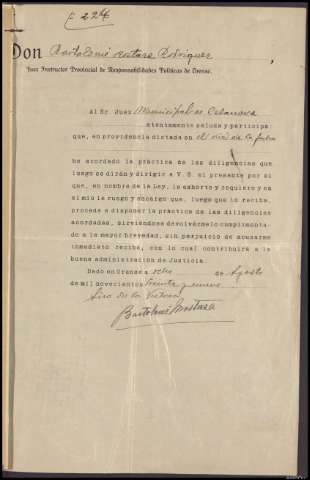 E 224
Don Bartolomé Mostaza Rodriguez
Juez Instructor Provincial de Responsabilidades Políticas de Orense.
Al Sr. Juez Municipal de Celanova
atentamente saluda y participa
que, en providencia dictada en el día de la fecha
ha acordado la práctica de las diligencias que
luego se dirán y dirigir a V. S. el presente por el
que, en nombre de la Ley, le exhorto y requiero y en
el mio le ruego y encargo que, luego que lo reciba,
proceda a disponer la práctica de las diligencias
acordadas, sirviendose devolvérmelo cumplimenta-
do a la mayor brevedad, sin perjuicio de acusarme
inmediato recibo, con lo cual contribuirá a la
buena administración de Justicia.
Dado en Orense a ocho de Agosto
de mil novecientos treinta y nueve
Año de la Victoria
Bartolomé Mostaza